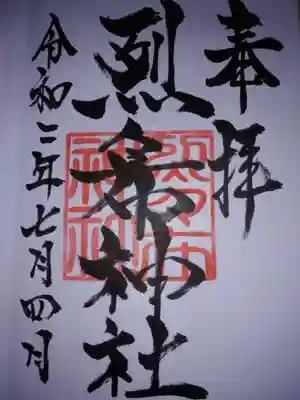 奉拝
烈々布神社
令和二年七月四日